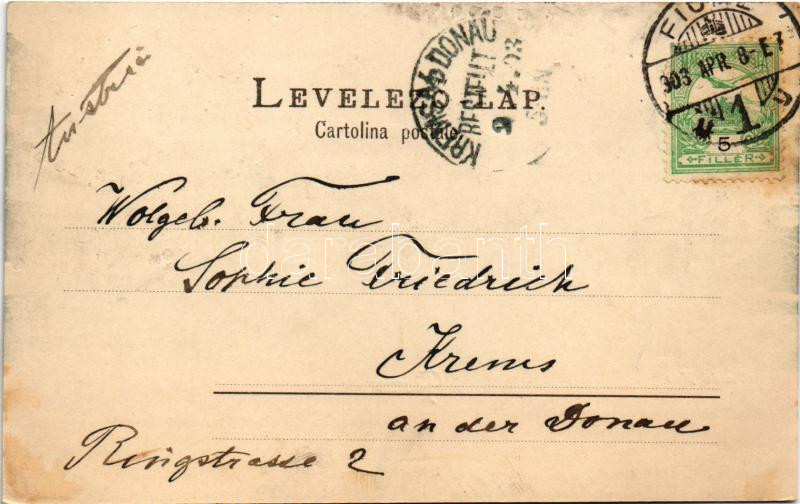 Austria
LEVELEZŐ LAP.
Cartolina postale
KREMS A/D DONAU
BESTELLT
9 4 03
FIUME
903 APR 8-E7
1
5
FILLÉR
Wolgeb. Frau
Sophie Friedrich
Krems
an der Donau
Ringstrasse 2
darabanth